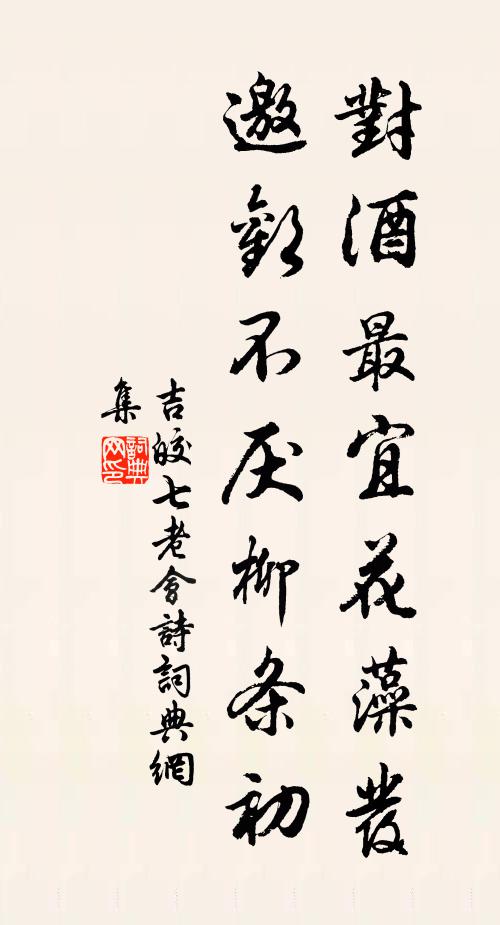 對酒最宜花藻發
邀歡不厌柳条初
吉皎七老會詩詞典網
集
詞典
网印